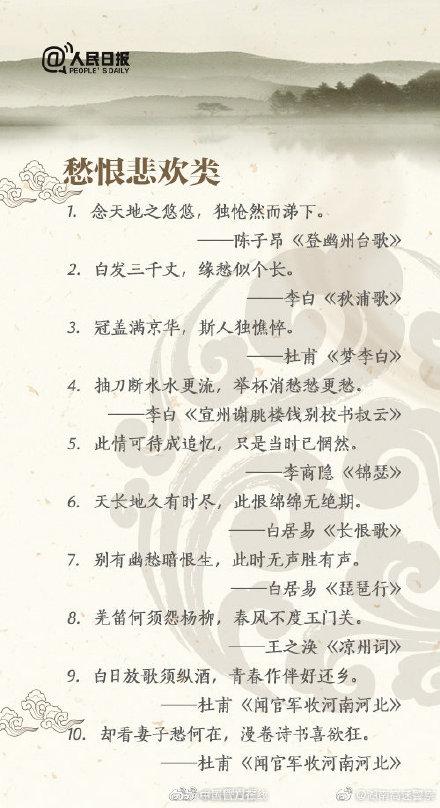 @人民日报
PEOPLE'S DAILY
愁恨悲欢类
1. 念天地之悠悠，独怆然而涕下。
——陈子昂《登幽州台歌》
2. 白发三千丈，缘愁似个长。
——李白《秋浦歌》
3. 冠盖满京华，斯人独憔悴。
——杜甫《梦李白》
4. 抽刀断水水更流，举杯消愁愁更愁。
——李白《宣州谢朓楼饯别校书叔云》
5. 此情可待成追忆，只是当时已惘然。
——李商隐《锦瑟》
6. 天长地久有时尽，此恨绵绵无绝期。
——白居易《长恨歌》
7. 别有幽愁暗恨生，此时无声胜有声。
——白居易《琵琶行》
8. 羌笛何须怨杨柳，春风不度玉门关。
——王之涣《凉州词》
9. 白日放歌须纵酒，青春作伴好还乡。
——杜甫《闻官军收河南河北》
10. 却看妻子愁何在，漫卷诗书喜欲狂。
——杜甫《闻官军收河南河北》
@湖南高速警察